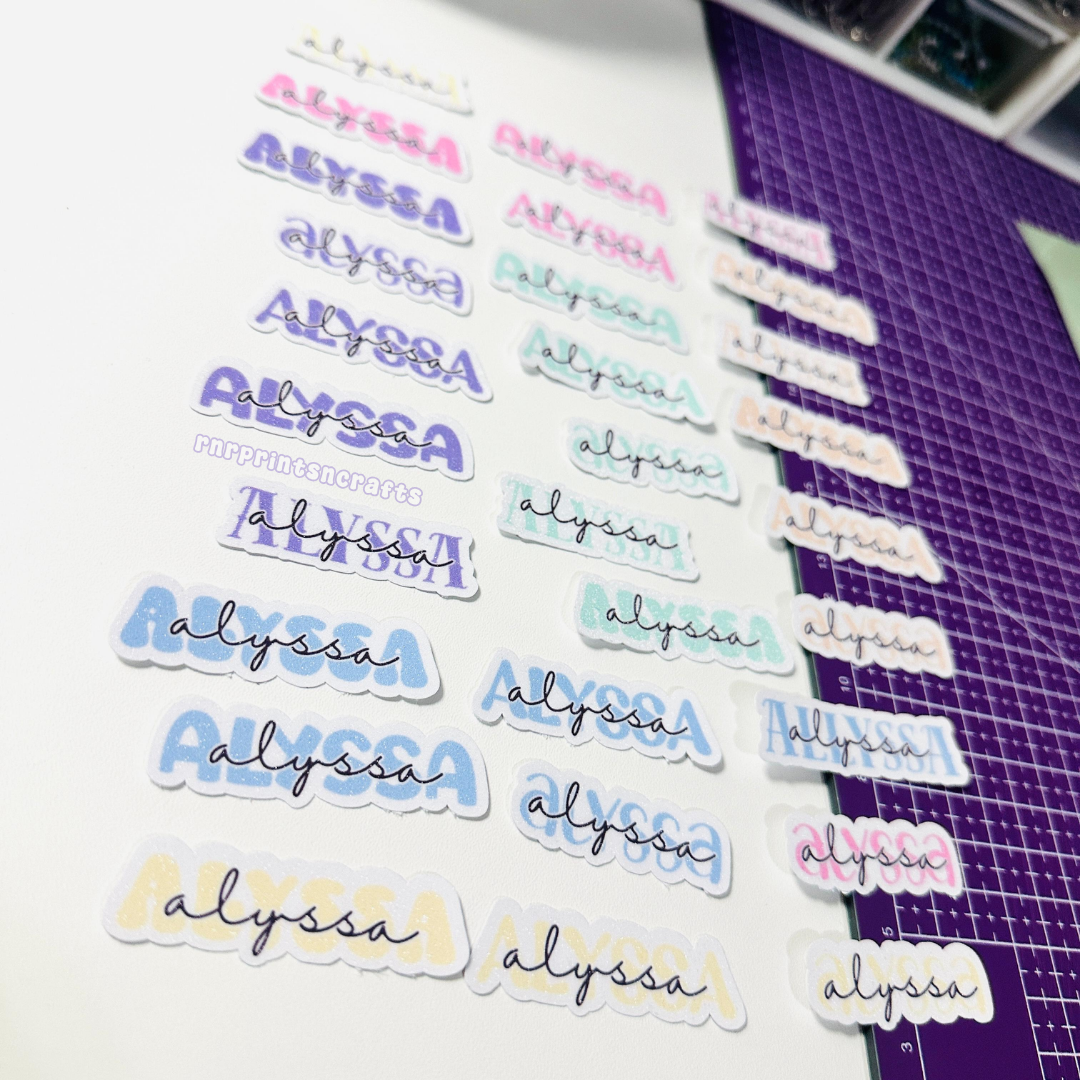 alyssa
ALYSSA
alyssa
ALYSSA
alyssa
alyssa
alyssa
ALYSSA
alyssa
ALYSSA
alyssa
rnrprintsncrafts
ALYSSA
alyssa
ALYSSA
alyssa
ALYSSA
alyssa
ALYSSA
alyssa
ALYSSA
alyssa
ALYSSA
alyssa
ALYSSA
alyssa
ALYSSA
alyssa
alyssa
alyssa
ALYSSA
alyssa
ALYSSA
alyssa
ALYSSA
alyssa
alyssa
alyssa
ALYSSA
alyssa
alyssa
ALYSSA
alyssa
alyssa
ALYSSA
alyssa
ALYSSA
alyssa
alyssa
alyssa
ALYSSA
alyssa
alyssa
alyssa
alyssa
alyssa
13
10
5
3